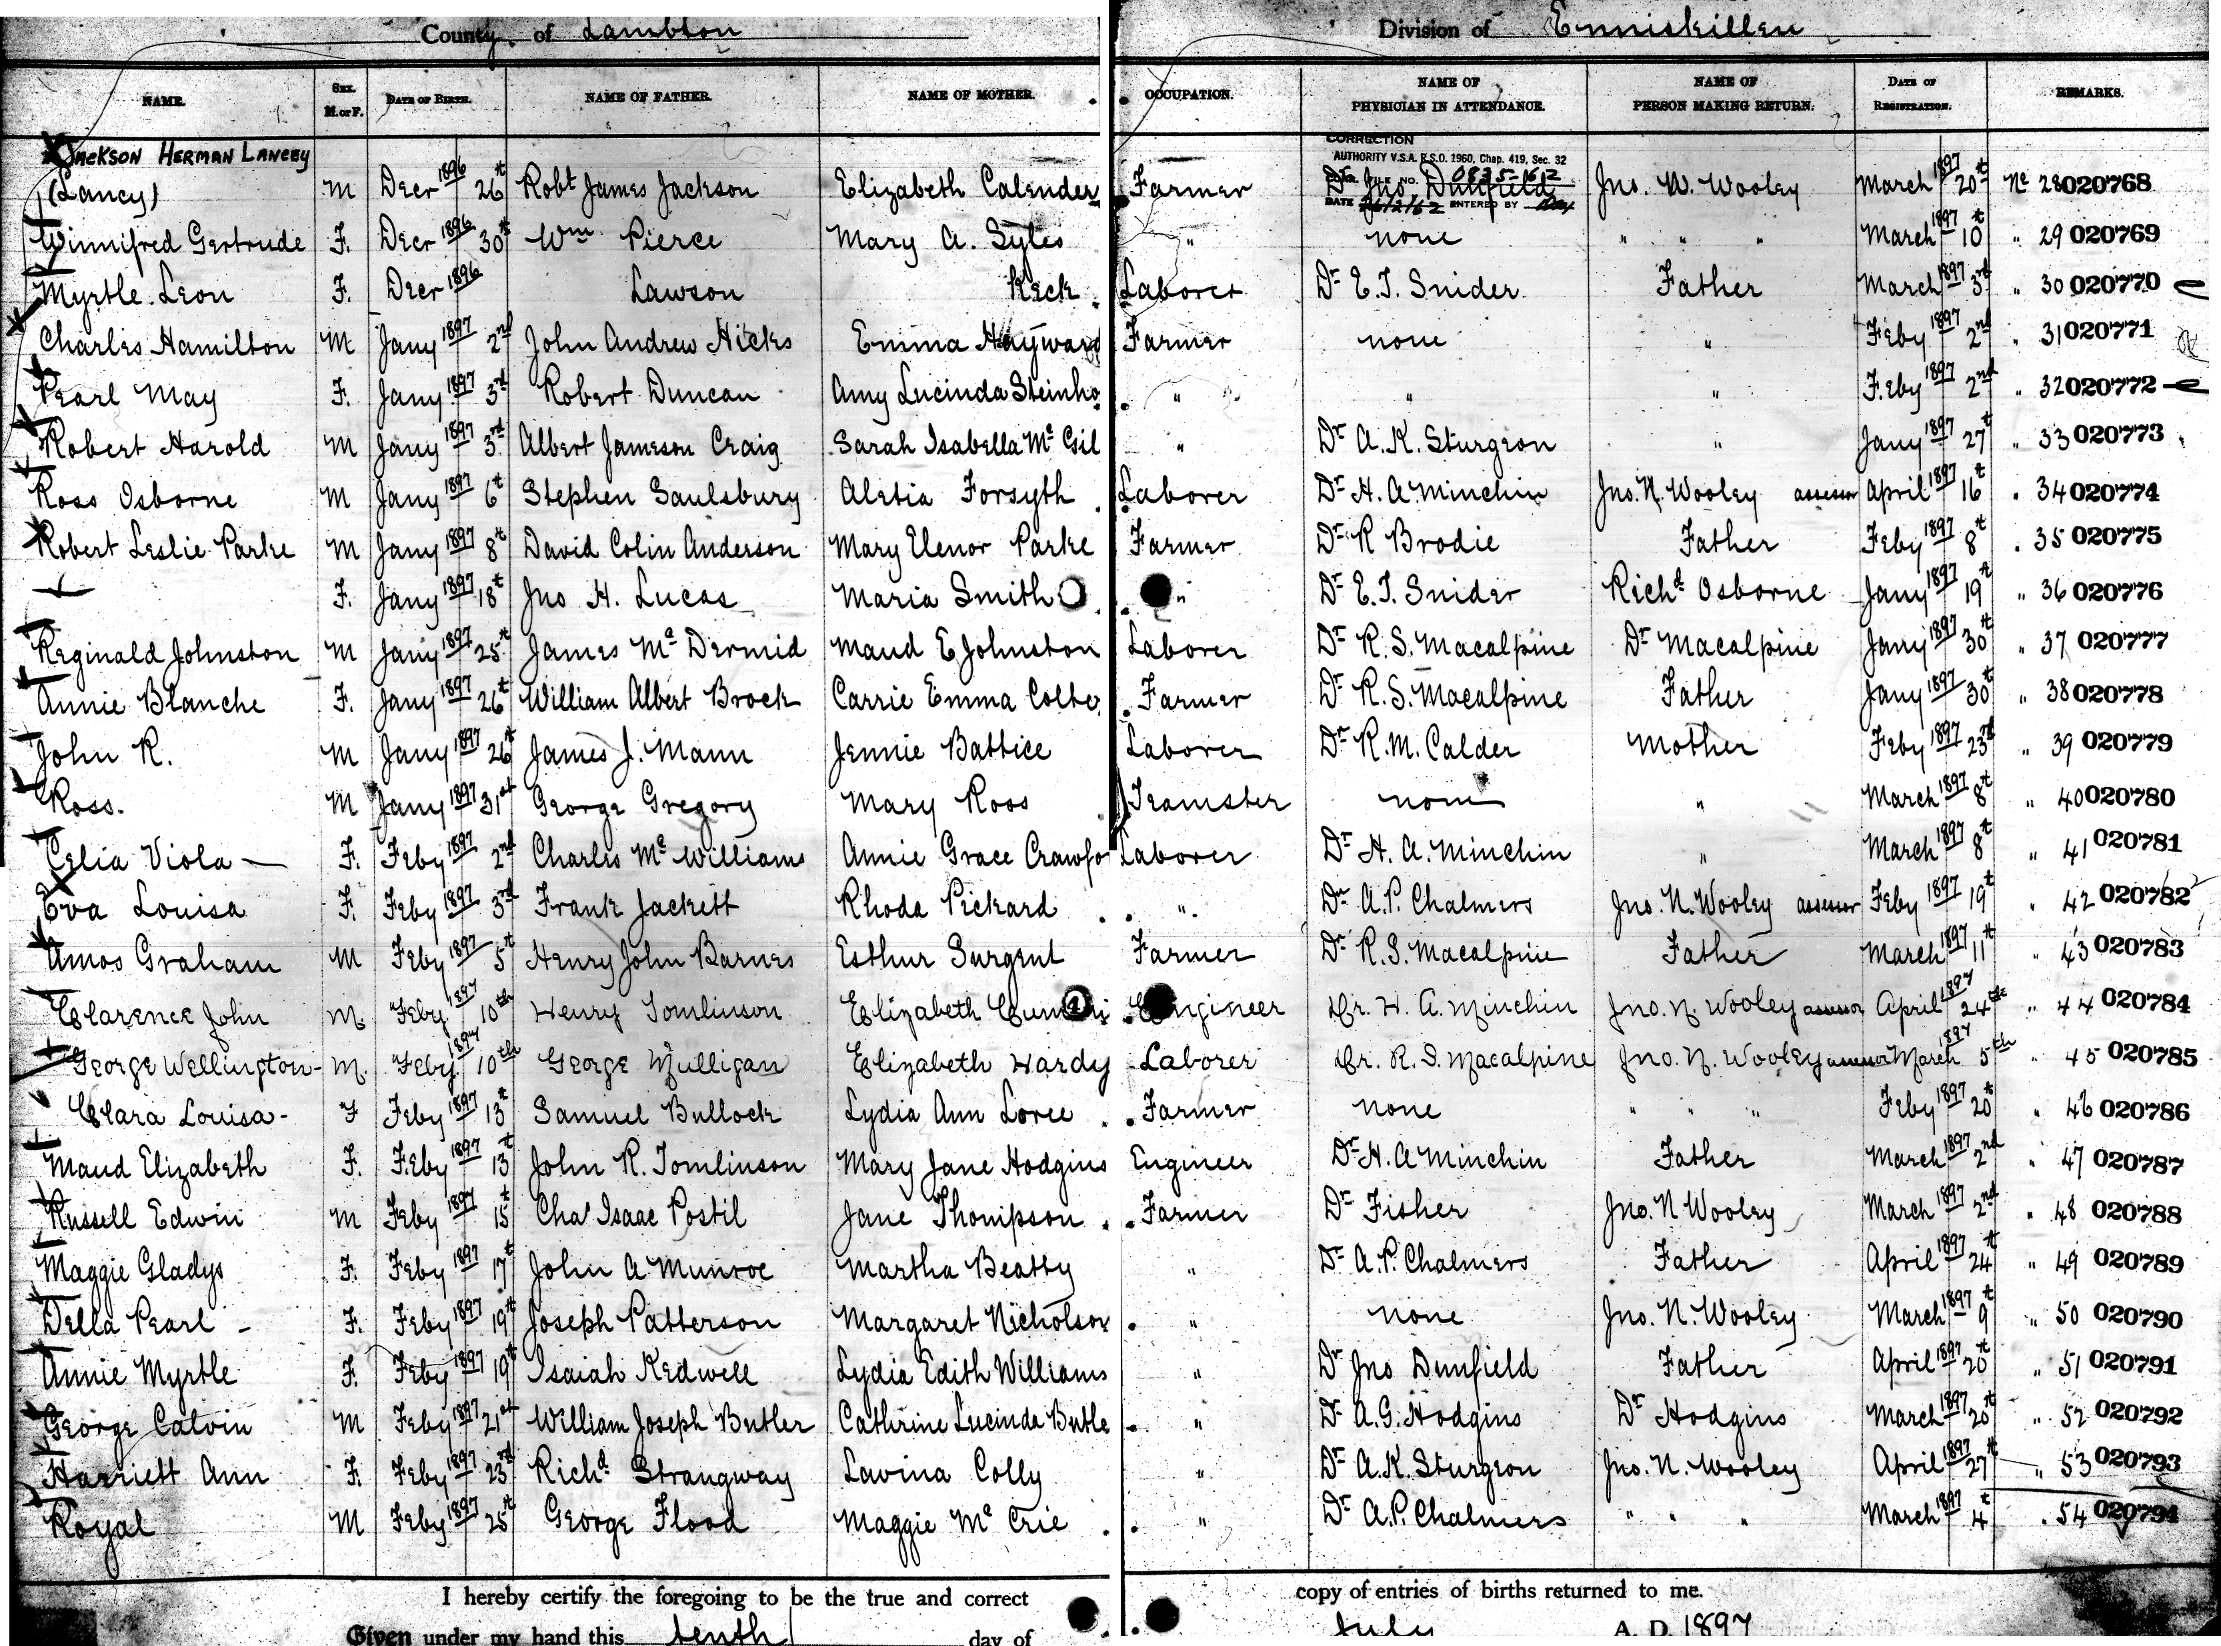 County of Lambton Division of Enniskillen
NAME. SEX. M. or F. DATE OF BIRTH. NAME OF FATHER. NAME OF MOTHER. OCCUPATION. NAME OF PHYSICIAN IN ATTENDANCE. NAME OF PERSON MAKING RETURN. DATE OF REGISTRATION. REMARKS.
JACKSON HERMAN LANCEY CORRECTION
AUTHORITY V.S.A. R.S.O. 1960, Chap. 419, Sec. 32
FILE NO. 0835-1612
(Lancy) M Decr 1896 26t Robt James Jackson Elizabeth Calender Farmer Dr Jno Dunfield Jno. N. Wooley March 1897 20t No 28 020768
DATE 26/2/62 ENTERED BY
Winnifred Gertrude F. Decr 1896 30t Wm Pierce Mary A. Syles " none " " " March 1897 10t " 29 020769
Myrtle Leon F. Decr 1896 Lawson Keck Laborer Dr E. T. Snider Father March 1897 3rd " 30 020770
Charles Hamilton M Jany 1897 2nd John Andrew Hicks Emma Hayward Farmer none " Feby 1897 2nd " 31 020771
Pearl May F. Jany 1897 3rd Robert Duncan Amy Lucinda Steinho " " " Feby 1897 2nd " 32 020772
Robert Harold M Jany 1897 3rd Albert Jameson Craig Sarah Isabella Mc Gil " Dr A. K. Sturgeon " Jany 1897 27t " 33 020773
Ross Osborne M Jany 1897 6t Stephen Saulsbury Aletia Forsyth Laborer Dr H. A Minchin Jno. N. Wooley assessor April 1897 16t " 34 020774
Robert Leslie Parke M Jany 1897 8t David Colin Anderson Mary Elenor Parke Farmer Dr R Brodie Father Feby 1897 8t " 35 020775
F. Jany 1897 18t Jno H. Lucas Maria Smith " Dr E. T. Snider Richd Osborne Jany 1897 19t " 36 020776
Reginald Johnston M Jany 1897 25t James Mc Dermid Maud E Johnston Laborer Dr R. S. Macalpine Dr Macalpine Jany 1897 30t " 37 020777
Annie Blanche F. Jany 1897 26t William Albert Brock Carrie Emma Colte Farmer Dr R. S. Macalpine Father Jany 1897 30t " 38 020778
John R. M Jany 1897 26t James J. Mann Jennie Battice Laborer Dr R. M. Calder Mother Feby 1897 23rd " 39 020779
Ross. M Jany 1897 31st George Gregory Mary Ross Teamster none " March 1897 8t " 40 020780
Celia Viola F. Feby 1897 2nd Charles Mc Williams Annie Grace Crawfo Laborer Dr H. A. Minchin " March 1897 8t " 41 020781
Eva Louisa F. Feby 1897 3rd Frank Jackett Rhoda Pickard " Dr A. P. Chalmers Jno. N. Wooley assessor Feby 1897 19t " 42 020782
Amos Graham M Feby 1897 5t Henry John Barnes Esthur Surgent Farmer Dr R. S. Macalpine Father March 1897 11t " 43 020783
Clarence John M. Feby 1897 10th Henry Tomlinson Elizabeth Engineer Dr. H. A. Minchin Jno. N. Wooley assessor April 1897 24th " 44 020784
George Wellington - M. Feby 1897 10th George Mulligan Elizabeth Hardy Laborer Dr. R. S. Macalpine Jno. N. Wooley assessor March 1897 5th " 45 020785
Clara Louisa - F Feby 1897 13t Samuel Bullock Lydia Ann Loree Farmer none " " " Feby 1897 20t " 46 020786
Maud Elizabeth F. Feby 1897 13t John R. Tomlinson Mary Jane Hodgins Engineer Dr H. A Minchin Father March 1897 2nd " 47 020787
Russell Edwin M Feby 1897 15t Chas Isaac Postil Jane Thompson Farmer Dr Fisher Jno. N Wooley March 1897 2nd " 48 020788
Maggie Gladys F. Feby 1897 17t John A Munroe Martha Beatty " Dr A. P. Chalmers Father April 1897 24t " 49 020789
Della Pearl - F. Feby 1897 19t Joseph Patterson Margaret Nicholson " none Jno. N. Wooley March 1897 9t " 50 020790
Annie Myrtle F. Feby 1897 19t Isaiah Kedwell Lydia Edith Williams " Dr Jno Dunfield Father April 1897 20t " 51 020791
George Calvin M Feby 1897 21st William Joseph Butler Cathrine Lucinda Butle " Dr A. G. Hodgins Dr Hodgins March 1897 20t " 52 020792
Harriett Ann F. Feby 1897 23rd Richd Strangway Lavina Colly " Dr A. K. Sturgeon Jno. N. Wooley April 1897 27t " 53 020793
Royal M Feby 1897 25t George Flood Maggie Mc Crie " Dr A. P. Chalmers " " " March 1897 4t " 54 020794
I hereby certify the foregoing to be the true and correct copy of entries of births returned to me.
Given under my hand this tenth day of July A. D. 1897